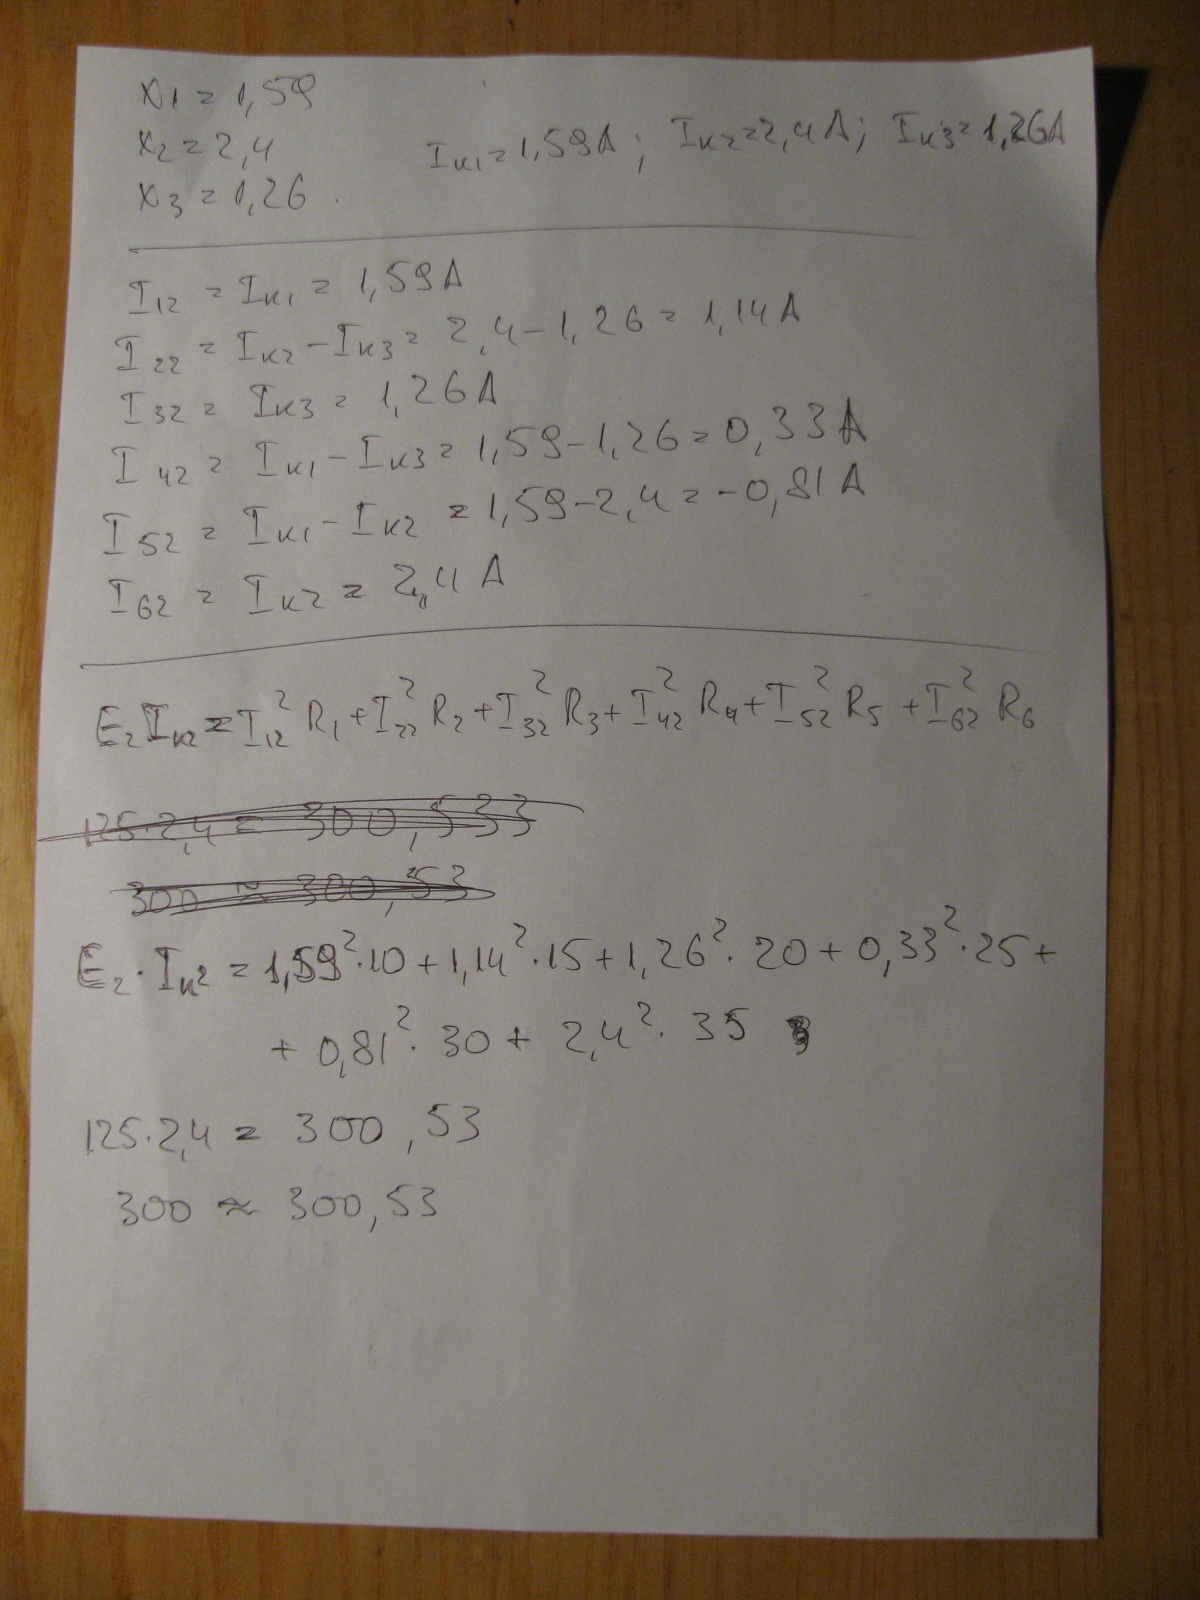 x1 = 1,59
x2 = 2,4
Iк1 = 1,59A; Iк2 = 2,4A; Iк3 = 1,26A
x3 = 1,26.
I12 = Iк1 = 1,59A
I22 = Iк2 - Iк3 = 2,4 - 1,26 = 1,14A
I32 = Iк3 = 1,26A
I42 = Iк1 - Iк3 = 1,59 - 1,26 = 0,33A
I52 = Iк1 - Iк2 = 1,59 - 2,4 = -0,81A
I62 = Iк2 = 2,4A
E2Iк2 = I12² R1 + I22² R2 + I32² R3 + I42² R4 + I52² R5 + I62² R6
125·2,4 = 300,533
300 ≈ 300,53
E2·Iк2 = 1,59²·10 + 1,14²·15 + 1,26²·20 + 0,33²·25 +
+ 0,81²·30 + 2,4²·35
125·2,4 = 300,53
300 ≈ 300,53